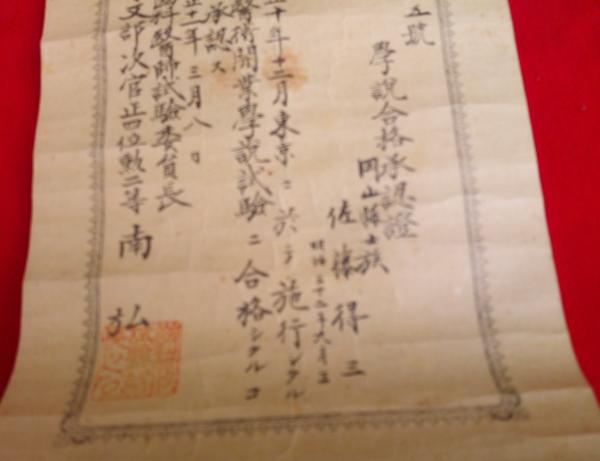 五號
學説合格承認證
岡山縣士族
佐藤得三
明治三十二年六月五
十年十二月東京ニ於テ施行シタル
醫術開業學説試驗ニ合格シタルコ
承認ス
正十一年三月八日
醫師試驗委員長
文部次官正四位勲二等南
弘